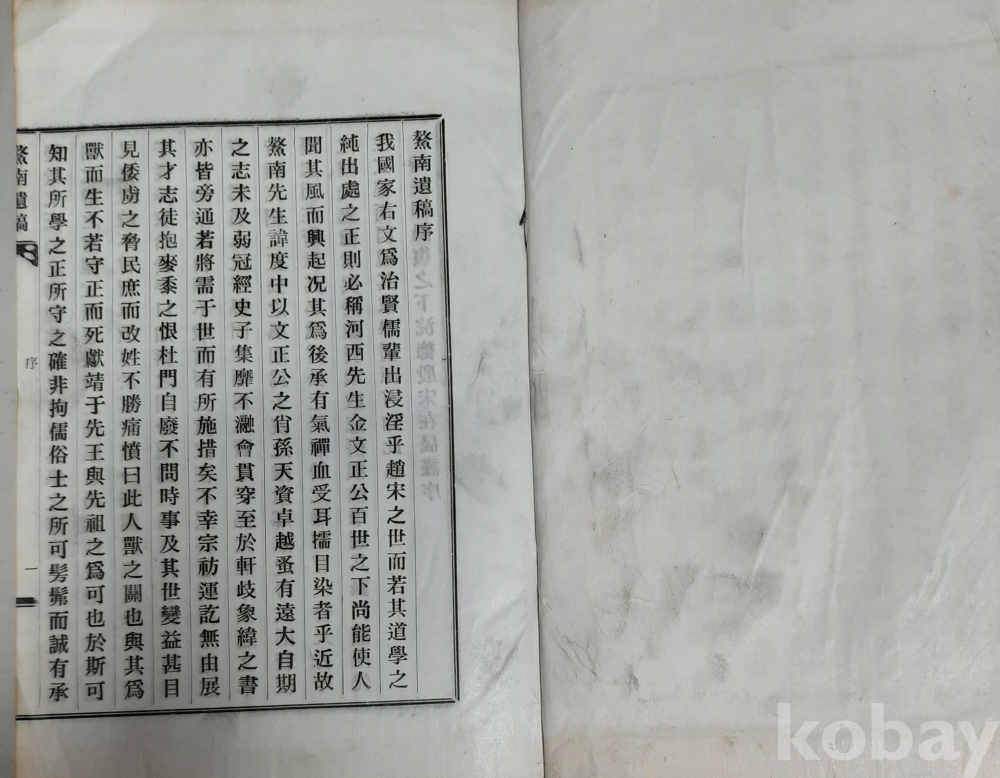 鰲南遺稿序
我國家右文爲治賢儒輩出浸淫乎趙宋之世而若其道學之
純出處之正則必稱河西先生金文正公百世之下尚能使人
聞其風而興起况其爲後承有氣禪血受耳擩目染者乎近故
鰲南先生諱度中以文正公之肖孫天資卓越蚤有遠大自期
之志未及弱冠經史子集靡不瀜會貫穿至於軒歧象緯之書
亦皆旁通若將需于世而有所施措矣不幸宗祊運訖無由展
其才志徒抱麥黍之恨杜門自廢不問時事及其世變益甚目
見倭虜之脅民庶而改姓不勝痛憤曰此人獸之關也與其爲
獸而生不若守正而死獻靖于先王與先祖之爲可也於斯可
知其所學之正所守之確非拘儒俗士之所可髣髴而誠有承
鰲南遺稿
序
一
kobay